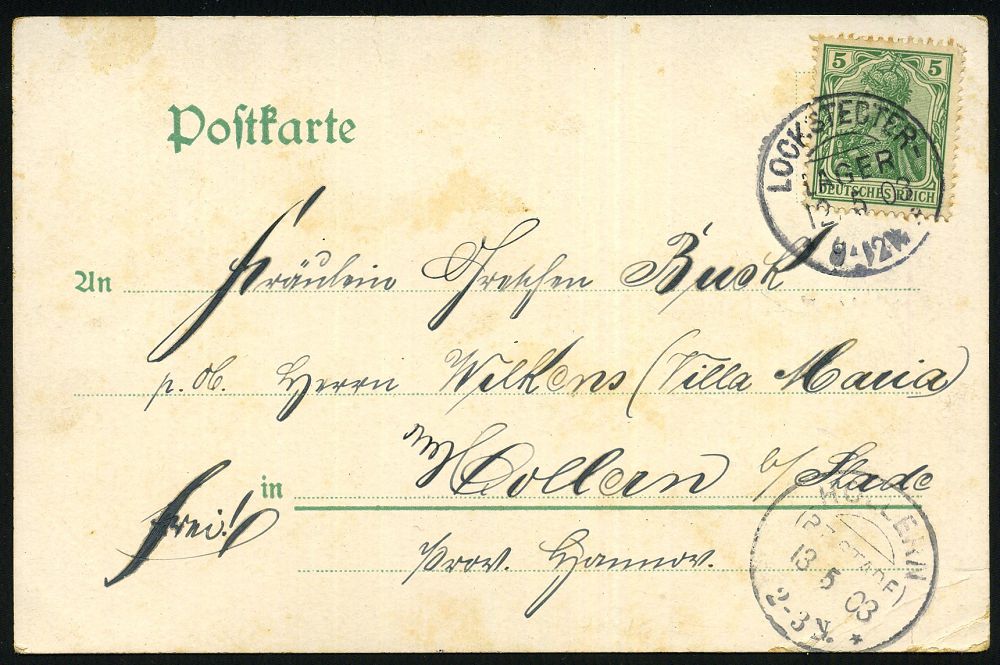 Postkarte
5 5
DEUTSCHES REICH
LOCKSTEDTER-
LAGER
12 5 03
9-12V.
An Fräulein Gretchen Buck
p. Ad. Herrn Wilkens (Villa Maria)
in Hollern b/ Stade
frei!
Prov. Hannov.
HOLLERN
(BZ. STADE)
13 5 03
2-3 N.